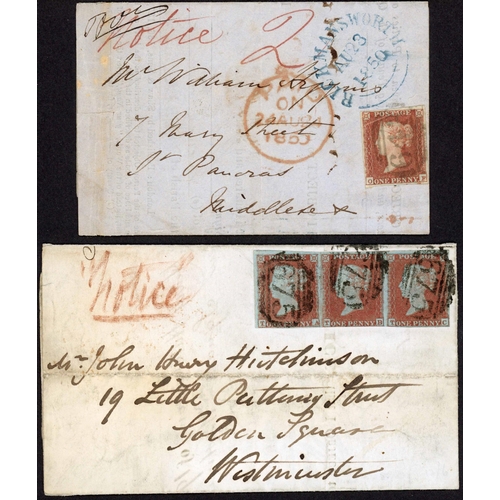 Notice 2
RICKMANSWORTH
AU 23
1850
Mr William
ON
24 AU 24
1850
7 Mary Street
St Pancras
Middlesex
POSTAGE
ONE PENNY
Notice
POSTAGE POSTAGE POSTAGE
ONE PENNY ONE PENNY ONE PENNY
Mr. John Henry Hutchinson
19 Little Pulteney Street
Golden Square
Westminster